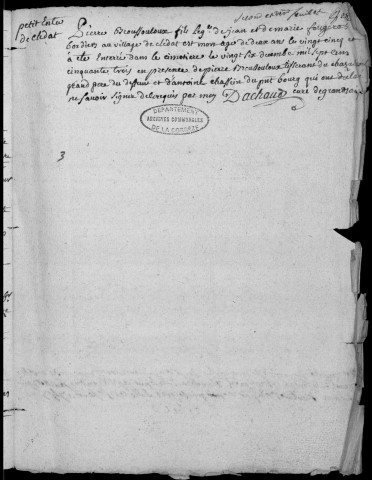 petit enter
de clédat
Second et dernier feuillet
Pierre fils leg.e de jean et de marie fougere
bordiers au village de cledat est mort agé de deux ans le vingt cinq et
a eté enterré dans le cimetiere le vingt six decembre mil sept cens
cinquante trois en presence de pierre tisserand du
grand pere du deffunt et d'antoine chassein du petit bourg qui ont declaré
ne savoir signer de ce requis par moy Dachaud curé de grandsaigne
DEPARTEMENT
ARCHIVES COMMUNALES
DE LA CORREZE
3